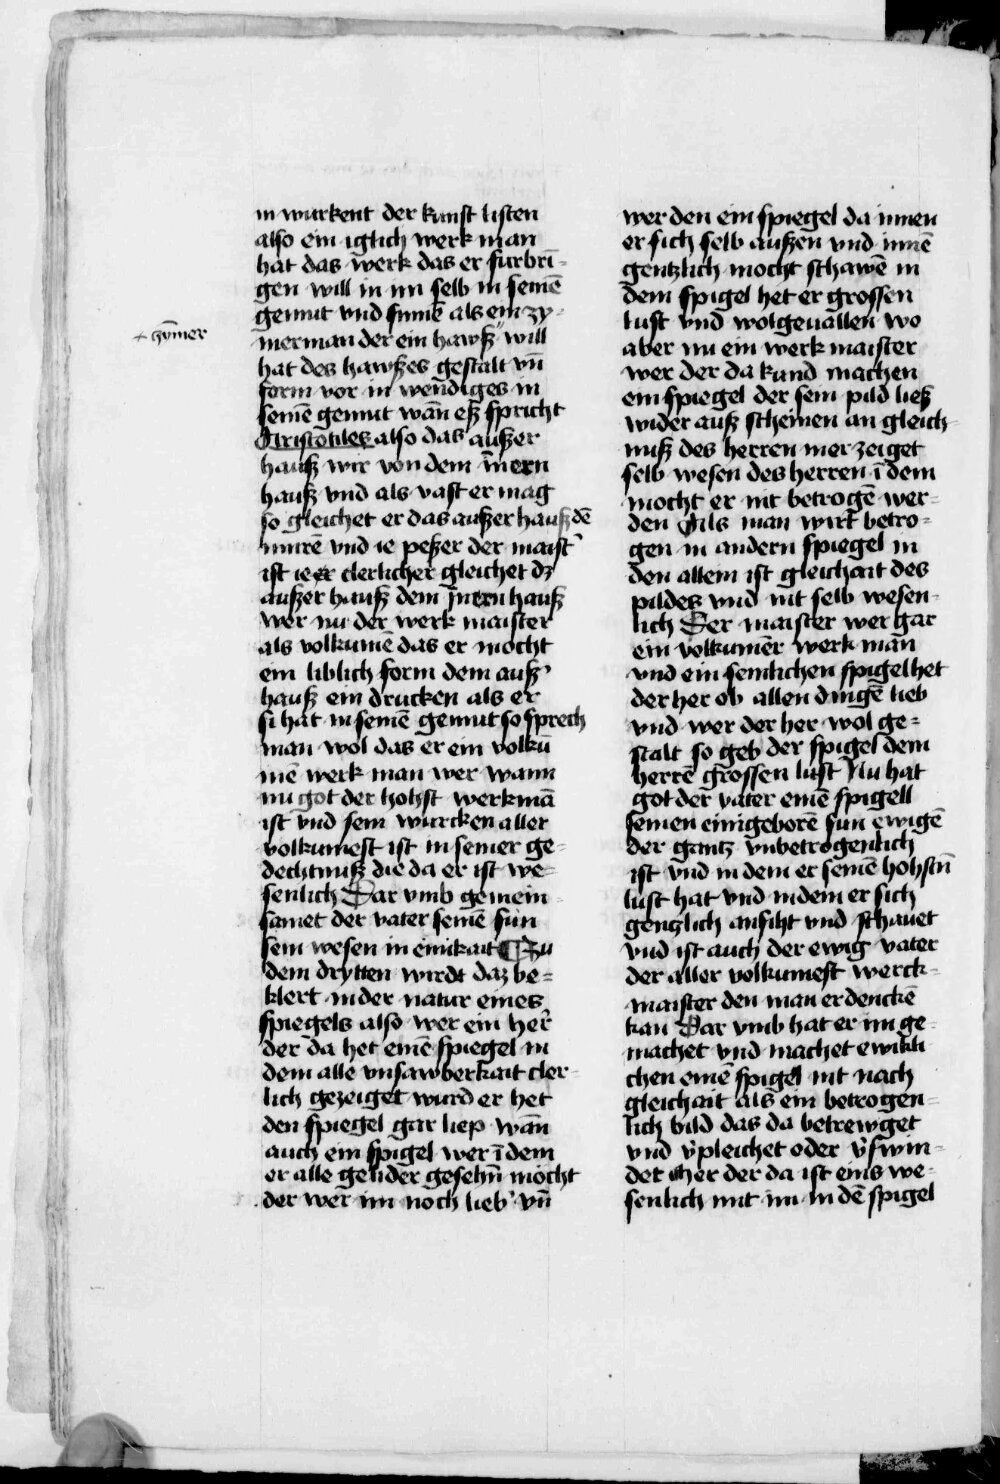 in wurkent der kunst listen
also ein iglich werk man
hat das werk das er furbrī-
gen will in im selb in seinē
gemut vnd synnē als ein zy-
merman der ein hawß" will
hat des hawßes gestalt vn̄
form vor in wendiges in
seinē gemut wān eß spricht
Aristotiles also das außer
hauß wir von dem īnern
hauß vnd als vast er mag
so gleichet er das außer hauß dē
innrē vnd ie peßer der maist'
ist ie er clerlicher gleichet dz
außer hauß dem īnern hauß
wer nu der werk maister
als volkumē das er mocht
ein liblich form dem auß'
hauß ein drucken als er
si hat in seinē gemut so sprech
man wol das er ein volkū
mē werk man wer wann
nu got der hohst werkmā
ist vnd sein wurcken aller
volkumest ist in seiner ge-
dechtnuß die da er ist we-
senlich Dar vmb gemein-
samet der vater seinē sun
sein wesen in einikait ¶ Zu
dem drytten wirdt daz be-
klert in der natur eines
spiegels also wer ein her̄
der da het einē spiegel in
dem alle vnsawberkait cler-
lich gezeiget wurd er het
den spiegel gar liep wān
auch ein spigel wer ī dem
er alle gelider gesehn̄ mocht
der wer im noch lieb' vn̄
+ zȳmer
wer den ein spiegel da innen
er sich selb außen vnd innē
gentzlich mocht schawē in
dem spigel het er grossen
lust vnd wolgeuallen wo
aber nu ein werk maister
wer der da kund machen
ein spiegel der sein pild ließ
wider auß scheinen an gleich-
nuß des herren mer zeiget
selb wesen des herren ī dem
mocht er nit betrogē wer-
den Als man wirt betro-
gen in andern spiegel in
den allem ist gleichait des
pildes vnd nit selb wesen-
lich Der maister wer gar
ein volkumēr werk man
vnd ein semlichen spigel het
der her ob allen dingē lieb
vnd wer der her wol ge-
stalt so geb der spigel dem
herrē grossen lust Nu hat
got der vater einē spigell
seinen eingeborē sun ewigē
der gantz vnbetrogenlich
ist vnd in dem er seinē hohstn̄
lust hat vnd in dem er sich
gentzlich ansiht vnd schauet
vnd ist auch der ewig vater
der aller volkumest werck-
maister den man erdenckē
kan Dar vmb hat er im ge-
machet vnd machet ewikli
chen einē spigel nit nach
gleichait als ein betrogen-
lich bild das da betrewget
vnd v'pleichet oder v'swin-
det her der da ist eins we-
senlich mit im in dē spigel